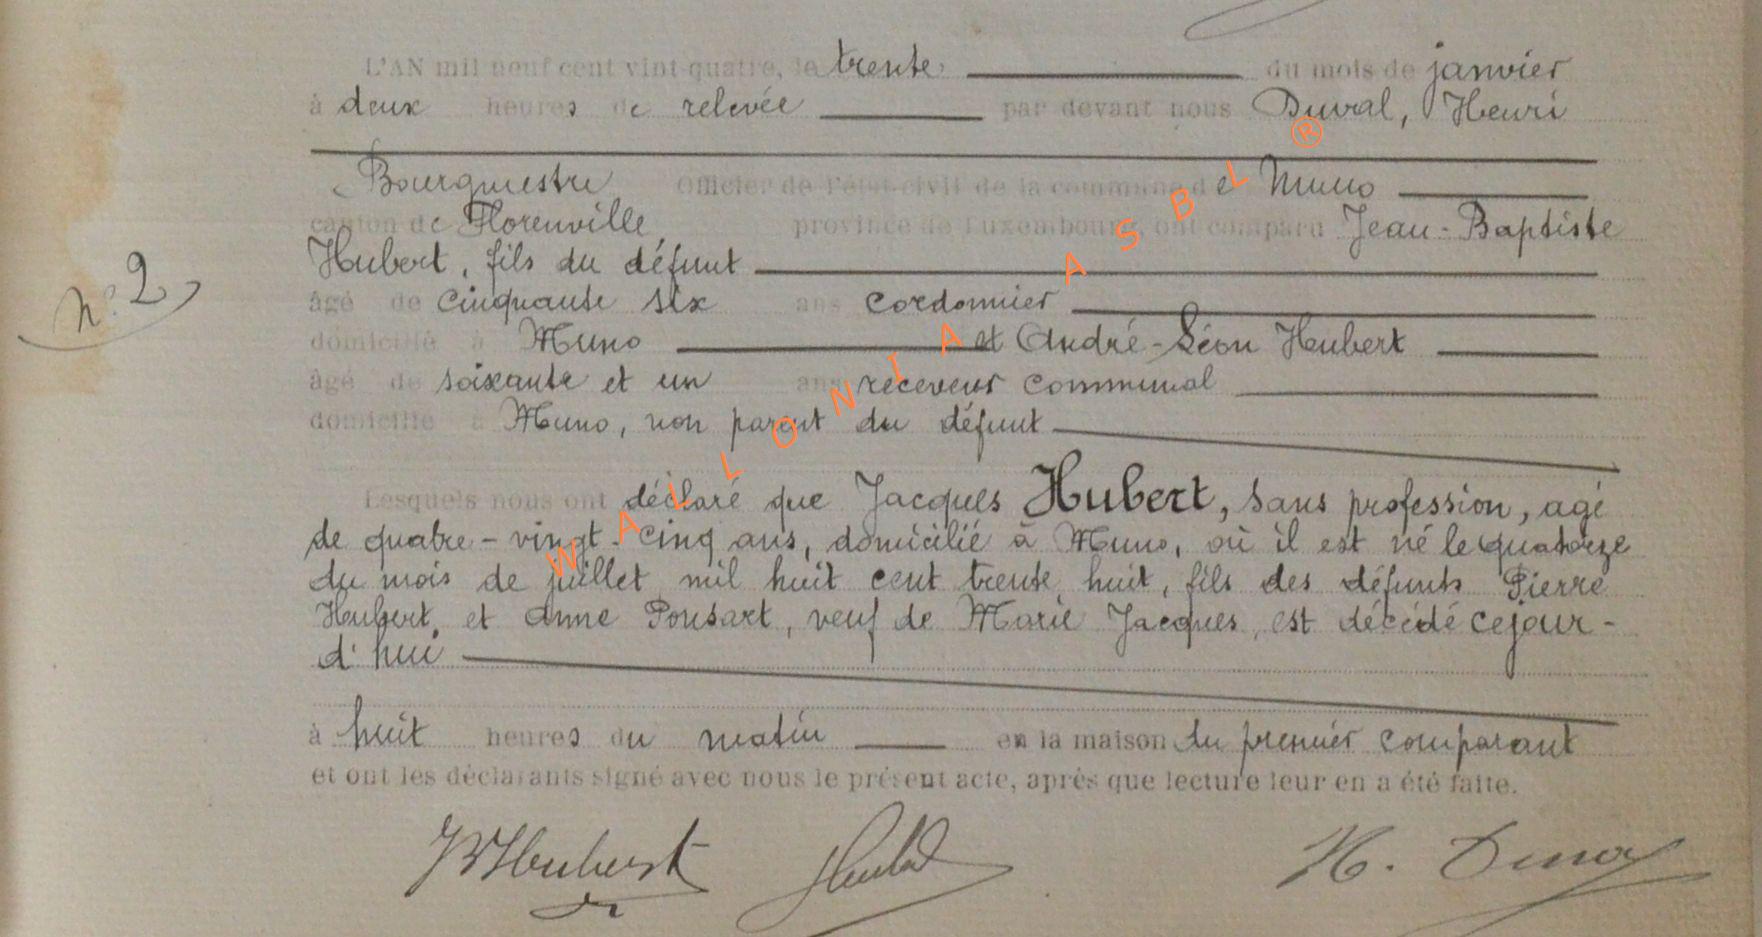 L'AN mil neuf cent vint-quatre, le trente du mois de janvier
à deux heures de relevée par devant nous Duval, Henri
Bourgmestre Officier de l'état-civil de la commune de Muno
canton de Florenville province de Luxembourg, ont comparu Jean-Baptiste
Hubert, fils du défunt
âgé de cinquante six ans cordonnier
domicilié à Muno et André-Léon Hubert
âgé de soixante et un ans receveur communal
domicilié à Muno, non parent du défunt
N° 2
Lesquels nous ont déclaré que Jacques Hubert, sans profession, agé
de quatre-vingt-cinq ans, domicilié à Muno, où il est né le quatorze
du mois de juillet mil huit cent trente huit, fils des défunts Pierre
Hubert, et Anne Ponsart, veuf de Marie Jacques, est décédé cejour-
d'hui
à huit heures du matin en la maison du premier comparant
et ont les déclarants signé avec nous le présent acte, après que lecture leur en a été faite.
JBHubert Hubert H. Duval
WALLONIA ASBL ®